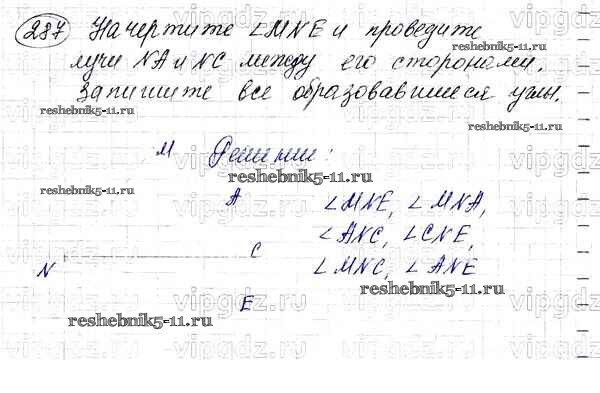 287 Начертите ∠MNE и проведите
reshebnik5-11.ru
лучи NA и NC между его сторонами.
Запишите все образовавшиеся углы.
reshebnik5-11.ru
reshebnik5-11.ru
M Решение:
reshebnik5-11.ru
reshebnik5-11.ru
A ∠MNE, ∠MNA,
∠ANC, ∠CNE,
C
N ∠MNC, ∠ANE
reshebnik5-11.ru
E
reshebnik5-11.ru
vipgdz.ru